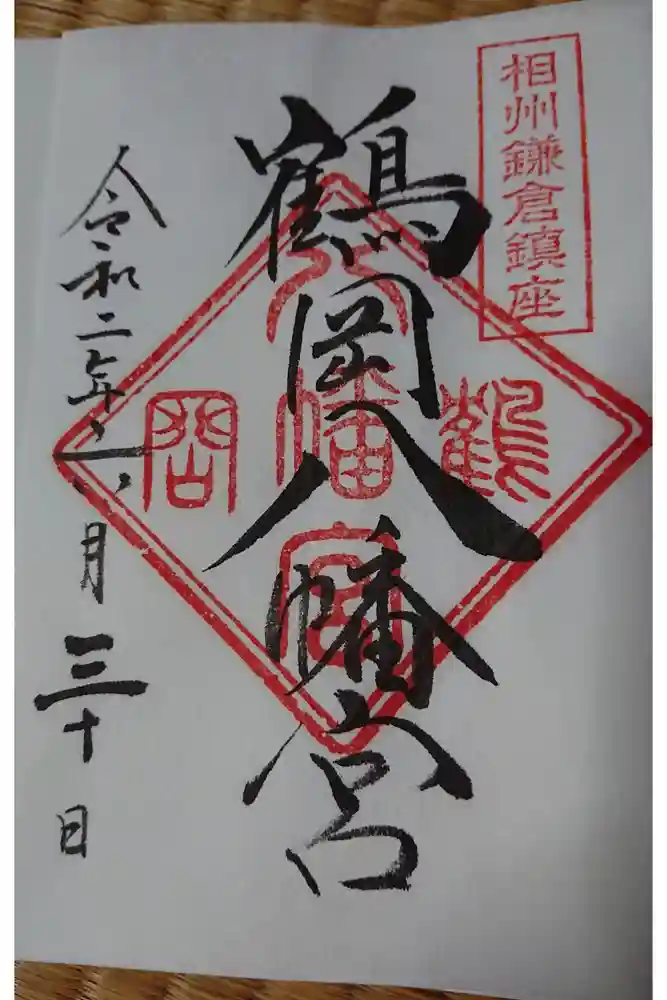 相州鎌倉鎮座
鶴岡八幡宮
鶴
岡
八
幡
宮
令和二年六月三十日